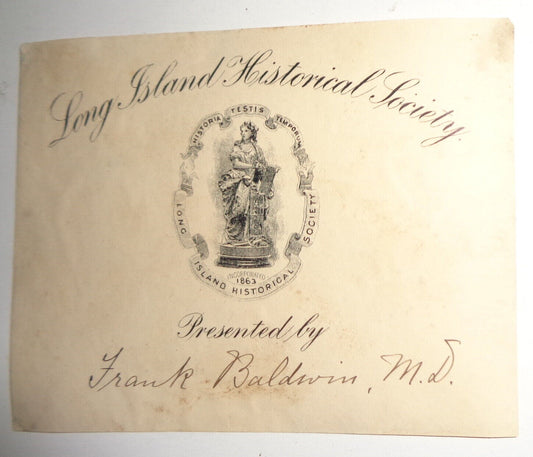 Long Island Historical Society.
HISTORIA TESTIS TEMPORUM
LONG ISLAND HISTORICAL SOCIETY
INCORPORATED
1863
Presented by
Frank Baldwin, M.D.